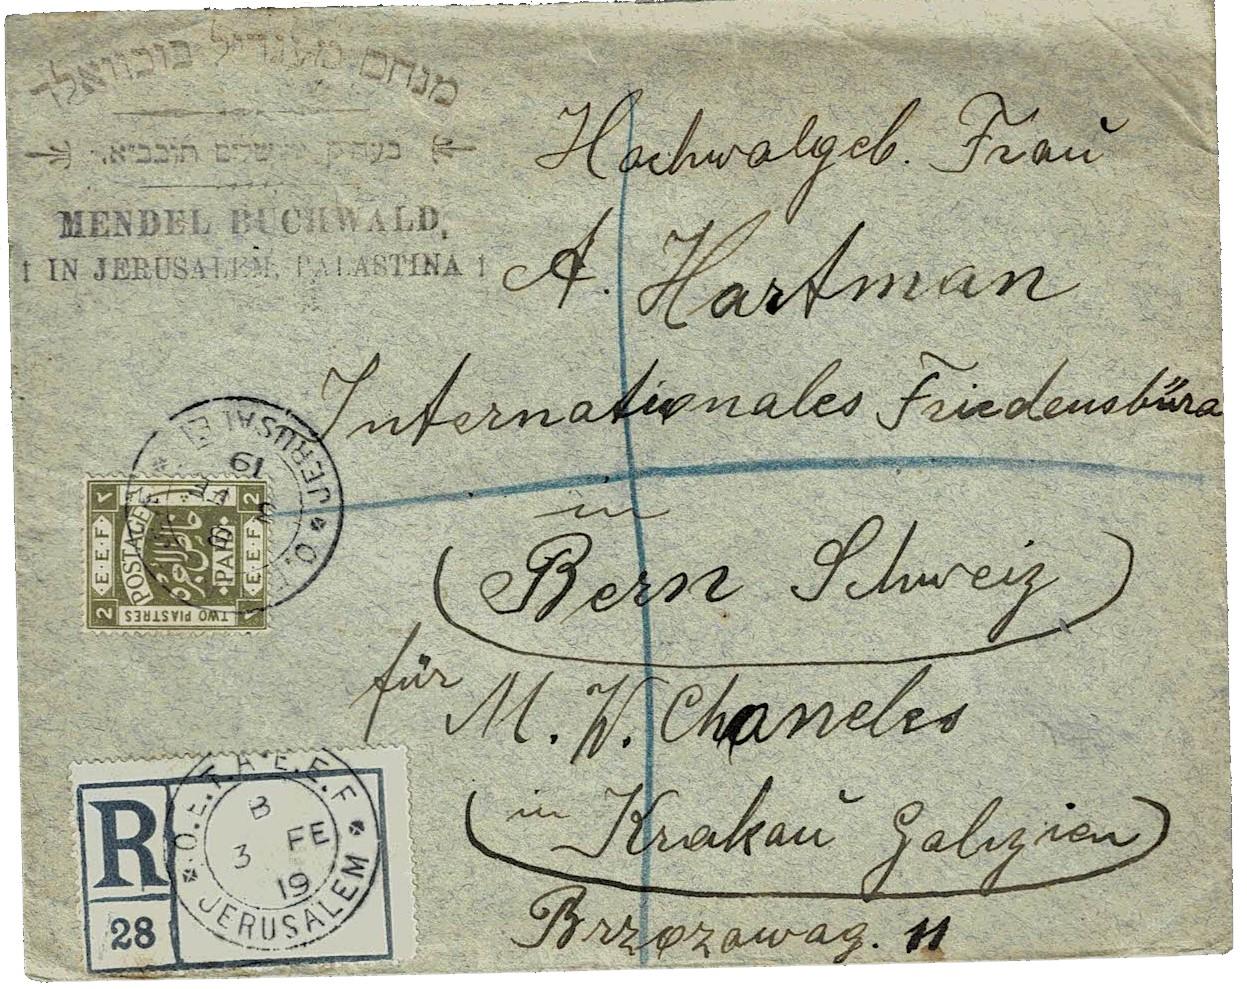 מנחם מענדיל בוכוואלד
בעה״ק ירושלים תובב״א
MENDEL BUCHWALD,
IN JERUSALEM, PALASTINA
Hochwolgeb. Frau
A. Hartman
Internationales Friedensbüro
in
Bern Schweiz
für
M. W. Chaneles
in Krakau Galizien
Brzozowag. 11
JERUSALEM
19
FE
POSTAGE
PAID
E.E.F.
E.E.F.
2
2
TWO PIASTRES
R
28
O.E.T.A E.E.F
B
3 FE
19
JERUSALEM